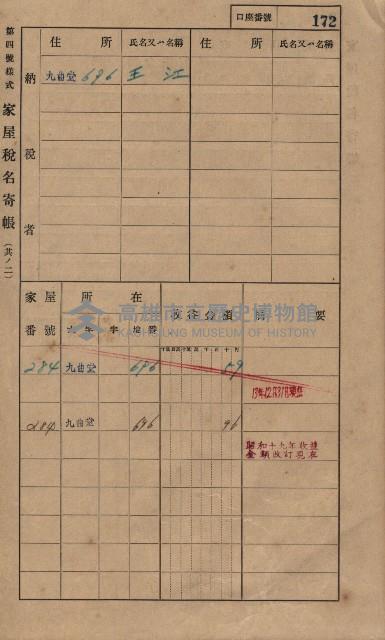 第四號樣式 家屋稅名寄帳 (其ノ二)
口座番號 172
納稅者
住所 氏名又ハ名稱 住所 氏名又ハ名稱
九曲堂 696 王 江
家屋番號 所在 收益金額 摘要
大字 字 地番
284 九曲堂 696 59
284 九曲堂 696 96
昭和十九年收益
金額改訂現在
高雄市立歷史博物館
KAOHSIUNG MUSEUM OF HISTORY